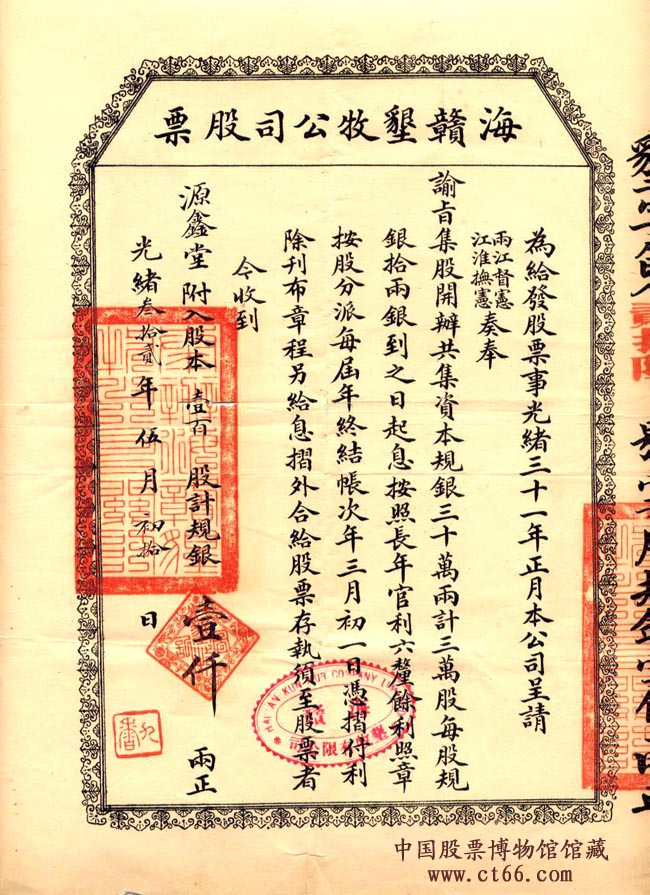 海贛墾牧公司股票
為給發股票事光緒三十一年正月本公司呈請
兩江督憲
江淮撫憲
奏奉
諭旨集股開辦共集資本規銀三十萬兩計三萬股每股規
銀拾兩銀到之日起息按照長年官利六釐餘利照章
按股分派每屆年終結帳次年三月初一日憑摺付利
除刊布章程另給息摺外合給股票存執須至股票者
今收到
源鑫堂附入股本壹百股計規銀壹仟兩正
光緒叁拾貳年伍月初拾日
中国股票博物馆馆藏
www.ct66.com